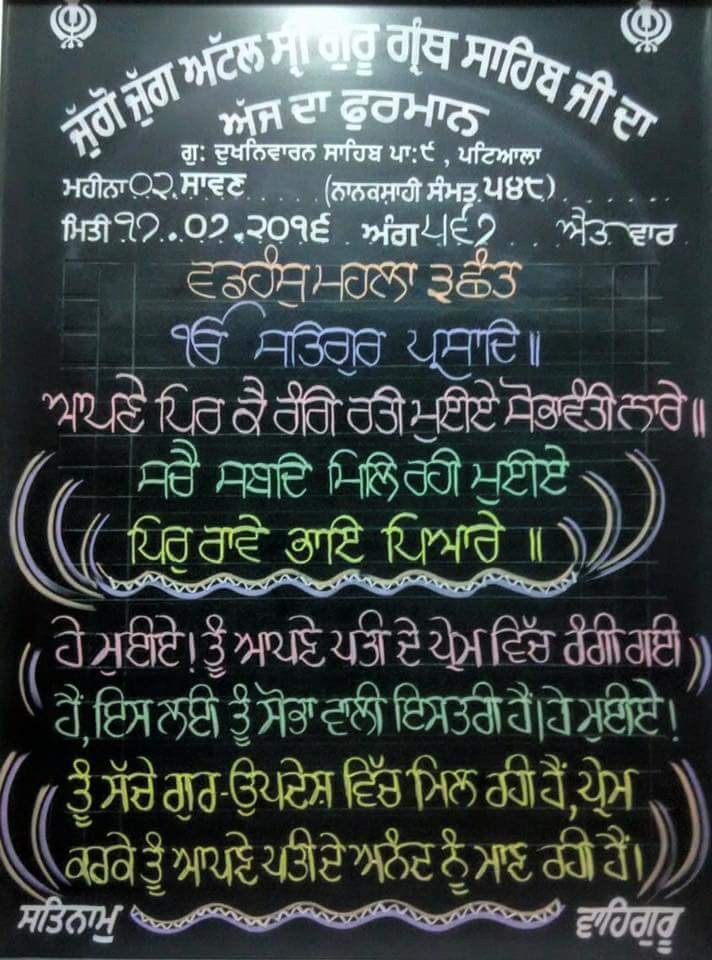 ਜੁੱਗੋ ਜੁੱਗ ਅਟੱਲ ਸ੍ਰੀ ਗੁਰੂ ਗ੍ਰੰਥ ਸਾਹਿਬ ਜੀ ਦਾ
ਅੱਜ ਦਾ ਫੁਰਮਾਨ
ਗੁ: ਦੁਖਨਿਵਾਰਨ ਸਾਹਿਬ ਪਾ:੯, ਪਟਿਆਲਾ
ਮਹੀਨਾ ੦੨ ਸਾਵਣ (ਨਾਨਕਸ਼ਾਹੀ ਸੰਮਤ ੫੪੮)
ਮਿਤੀ ੧੭.੦੭.੨੦੧੬ ਅੰਗ ੫੬੭ ਐਤ ਵਾਰ
ਵਡਹੰਸੁ ਮਹਲਾ ੩ ਛੰਤ
ੴ ਸਤਿਗੁਰ ਪ੍ਰਸਾਦਿ॥
ਆਪਣੇ ਪਿਰ ਕੈ ਰੰਗਿ ਰਤੀ ਮੁਈਏ ਸੋਭਾਵੰਤੀ ਨਾਰੇ॥
ਸਚੈ ਸਬਦਿ ਮਿਲਿ ਰਹੀ ਮੁਈਏ
ਪਿਰੁ ਰਾਵੇ ਭਾਇ ਪਿਆਰੇ ॥
ਹੇ ਮੁਈਏ! ਤੂੰ ਆਪਣੇ ਪਤੀ ਦੇ ਪ੍ਰੇਮ ਵਿੱਚ ਰੰਗੀ ਗਈ
ਹੈਂ, ਇਸ ਲਈ ਤੂੰ ਸੋਭਾ ਵਾਲੀ ਇਸਤਰੀ ਹੈਂ। ਹੇ ਮੁਈਏ!
ਤੂੰ ਸੱਚੇ ਗੁਰ-ਉਪਦੇਸ਼ ਵਿੱਚ ਮਿਲ ਰਹੀ ਹੈਂ, ਪ੍ਰੇਮ
ਕਰਕੇ ਤੂੰ ਆਪਣੇ ਪਤੀ ਦੇ ਅਨੰਦ ਨੂੰ ਮਾਣ ਰਹੀ ਹੈਂ।
ਸਤਿਨਾਮੁ ਵਾਹਿਗੁਰੂ